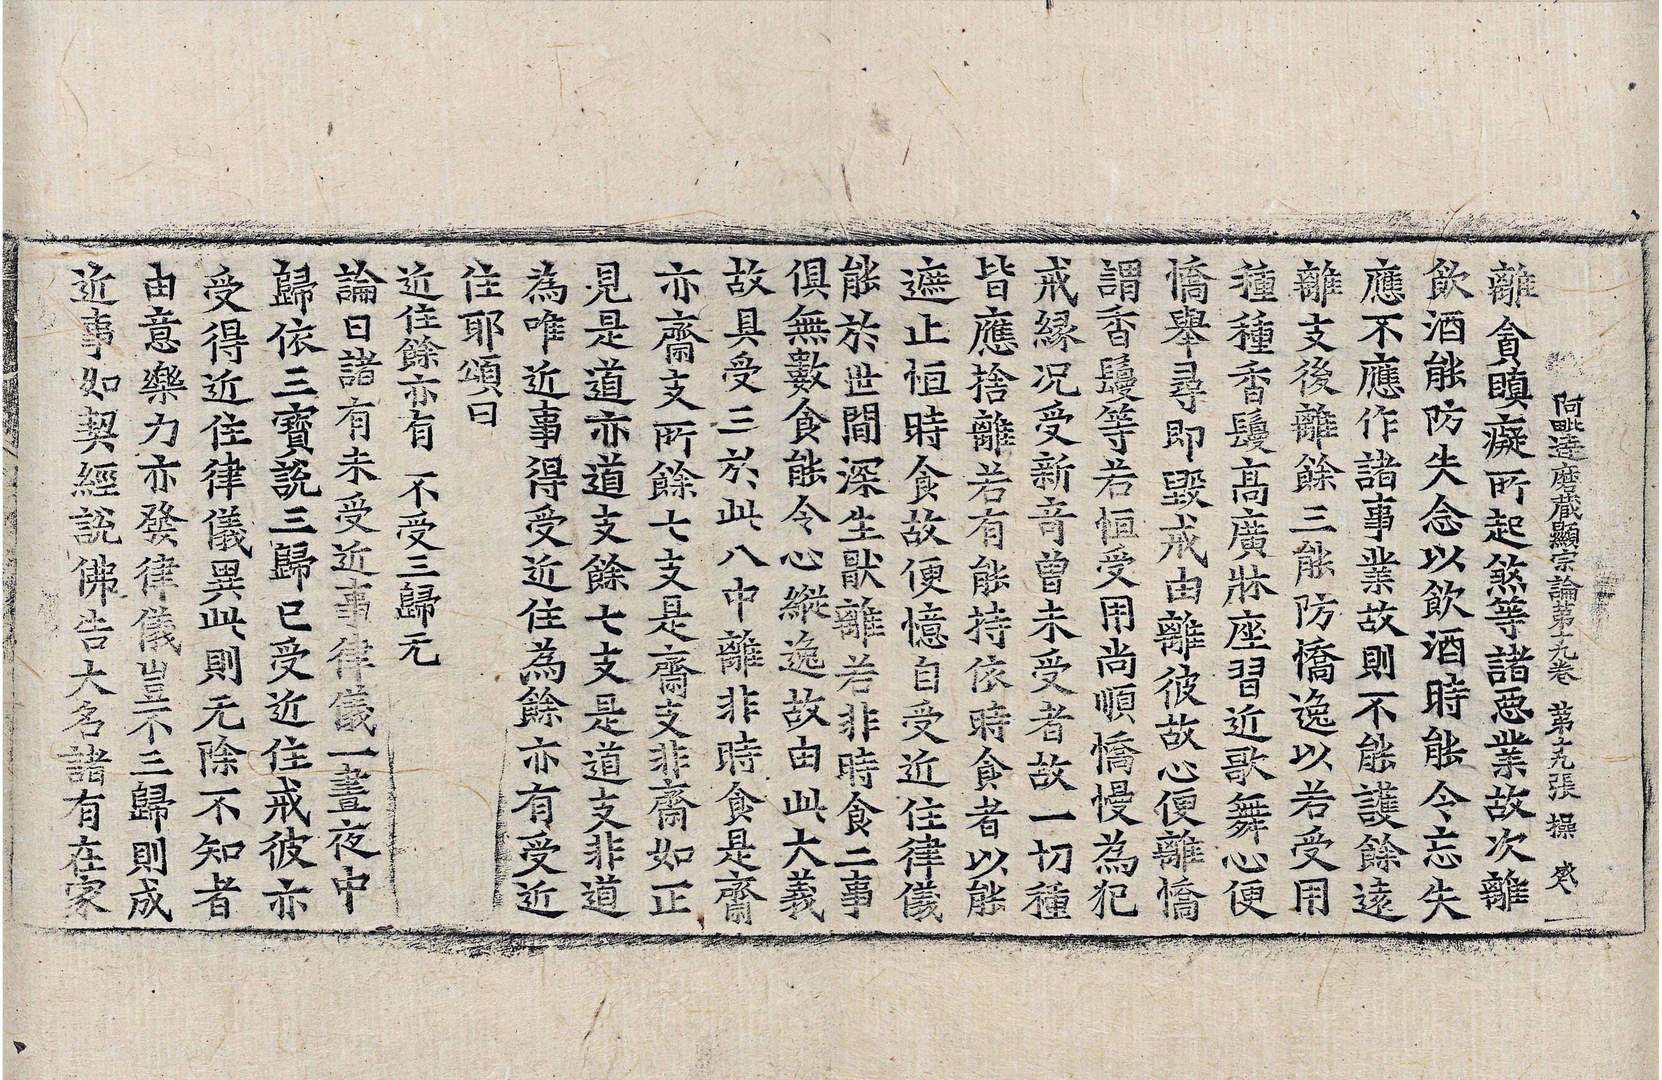 阿毗達磨藏顯宗論第十九卷　第十九張　操
離貪瞋癡所起煞等諸惡業故次離
飲酒能防失念以飲酒時能令忘失
應不應作諸事業故則不能護餘遠
離支後離餘三能防憍逸以若受用
種種香鬘高廣牀座習近歌舞心便
憍舉尋即毀戒由離彼故心便離憍
謂香鬘等若恒受用尚順憍慢為犯
戒緣况受新音曾未受者故一切種
皆應捨離若有能持依時食者以能
遮止恒時食故便憶自受近住律儀
能於世間深生猒離若非時食二事
俱無數食能令心縱逸故由此大義
故具受三於此八中離非時食是齋
亦齋支所餘七支是齋支非齋如正
見是道亦道支餘七支是道支非道
為唯近事得受近住為餘亦有受近
住耶頌曰
近住餘亦有　不受三歸无
論曰諸有未受近事律儀一晝夜中
歸依三寶說三歸已受近住戒彼亦
受得近住律儀異此則无除不知者
由意樂力亦發律儀豈不三歸則成
近事如契經說佛告大名諸有在家